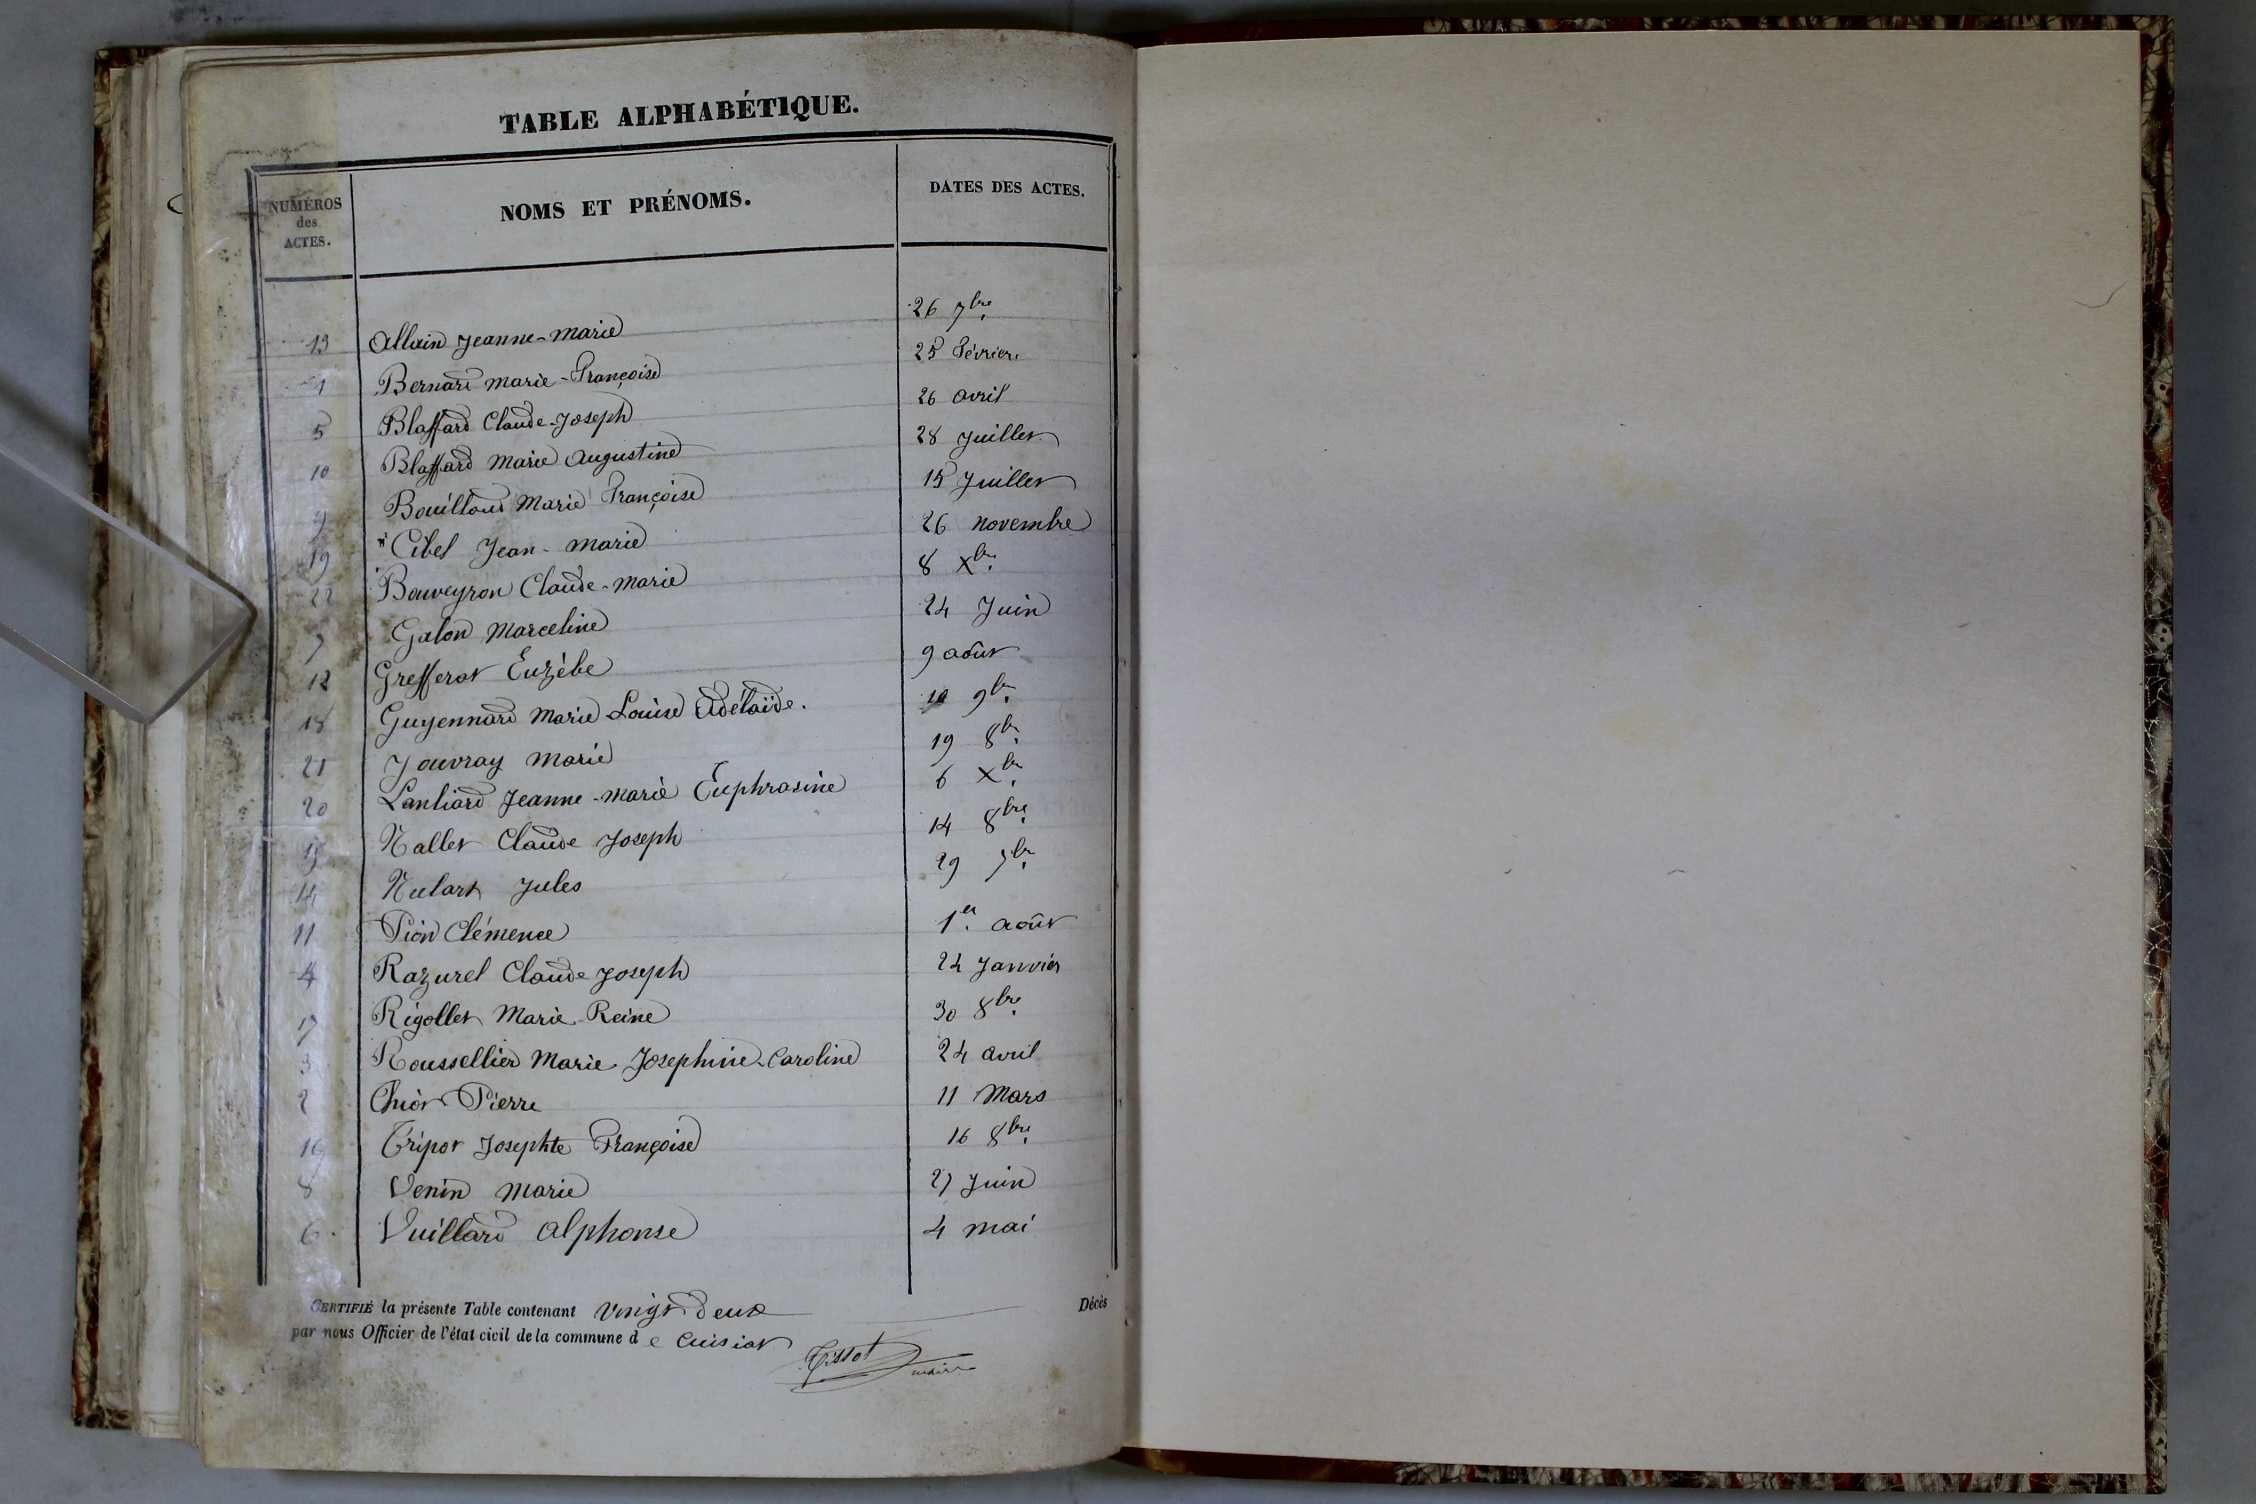 TABLE ALPHABÉTIQUE.
NUMÉROS des ACTES. NOMS ET PRÉNOMS. DATES DES ACTES.
13 Allain Jeanne-Marie 26 7bre
1 Bernard Marie-Françoise 25 Février
5 Blaffard Claude-Joseph 26 avril
10 Blaffard Marie Augustine 28 Juillet
9 Bouilloud Marie Françoise 15 Juillet
19 Cibel Jean-Marie 26 novembre
22 Bouveyron Claude-Marie 8 Xbre
7 Galon Marceline 24 Juin
12 Grefferat Euzèbe 9 août
18 Guyennard Marie Louise Adélaïde. 9bre
21 Jouvray Marie 19 8bre
20 Lanliard Jeanne-Marie Euphrasine 6 Xbre
15 Nallet Claude Joseph 14 8bre
14 Jules 29 7bre
11 Pion Clémence 1er août
4 Razurel Claude Joseph 24 Janvier
17 Rigollet Marie-Reine 30 8bre
3 Roussellier Marie Josephine-Caroline 24 avril
2 Pierre 11 Mars
16 Tripot Josephte Françoise 16 8bre
8 Venin Marie 27 Juin
6 Vuillard Alphonse 4 mai
CERTIFIÉ la présente Table contenant vingt deux Décès
par nous Officier de l'état cicil de la commune d e Cuisiat
Tissot maire